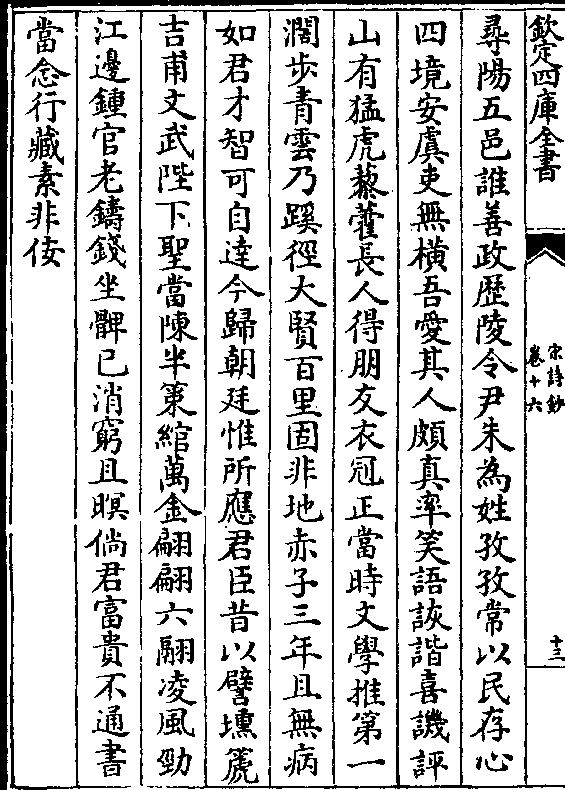 欽定四庫全書
宋詩鈔
卷十六
十三
尋陽五邑誰善政歴陵令尹朱為姓孜孜常以民存心
四境安虞吏無橫吾愛其人頗真率笑語詼諧喜譏評
山有猛虎藜藿長人得朋友衣冠正當時文學推第一
濶步青雲乃蹊徑大賢百里固非地赤子三年且無病
如君才智可自達今歸朝廷惟所應君臣昔以譬壎篪
吉甫文武陛下聖當陳半策綰萬金翩翩六翮凌風勁
江邊鍾官老鑄錢坐髀已消窮且瞑倘君富貴不通書
當念行藏素非佞